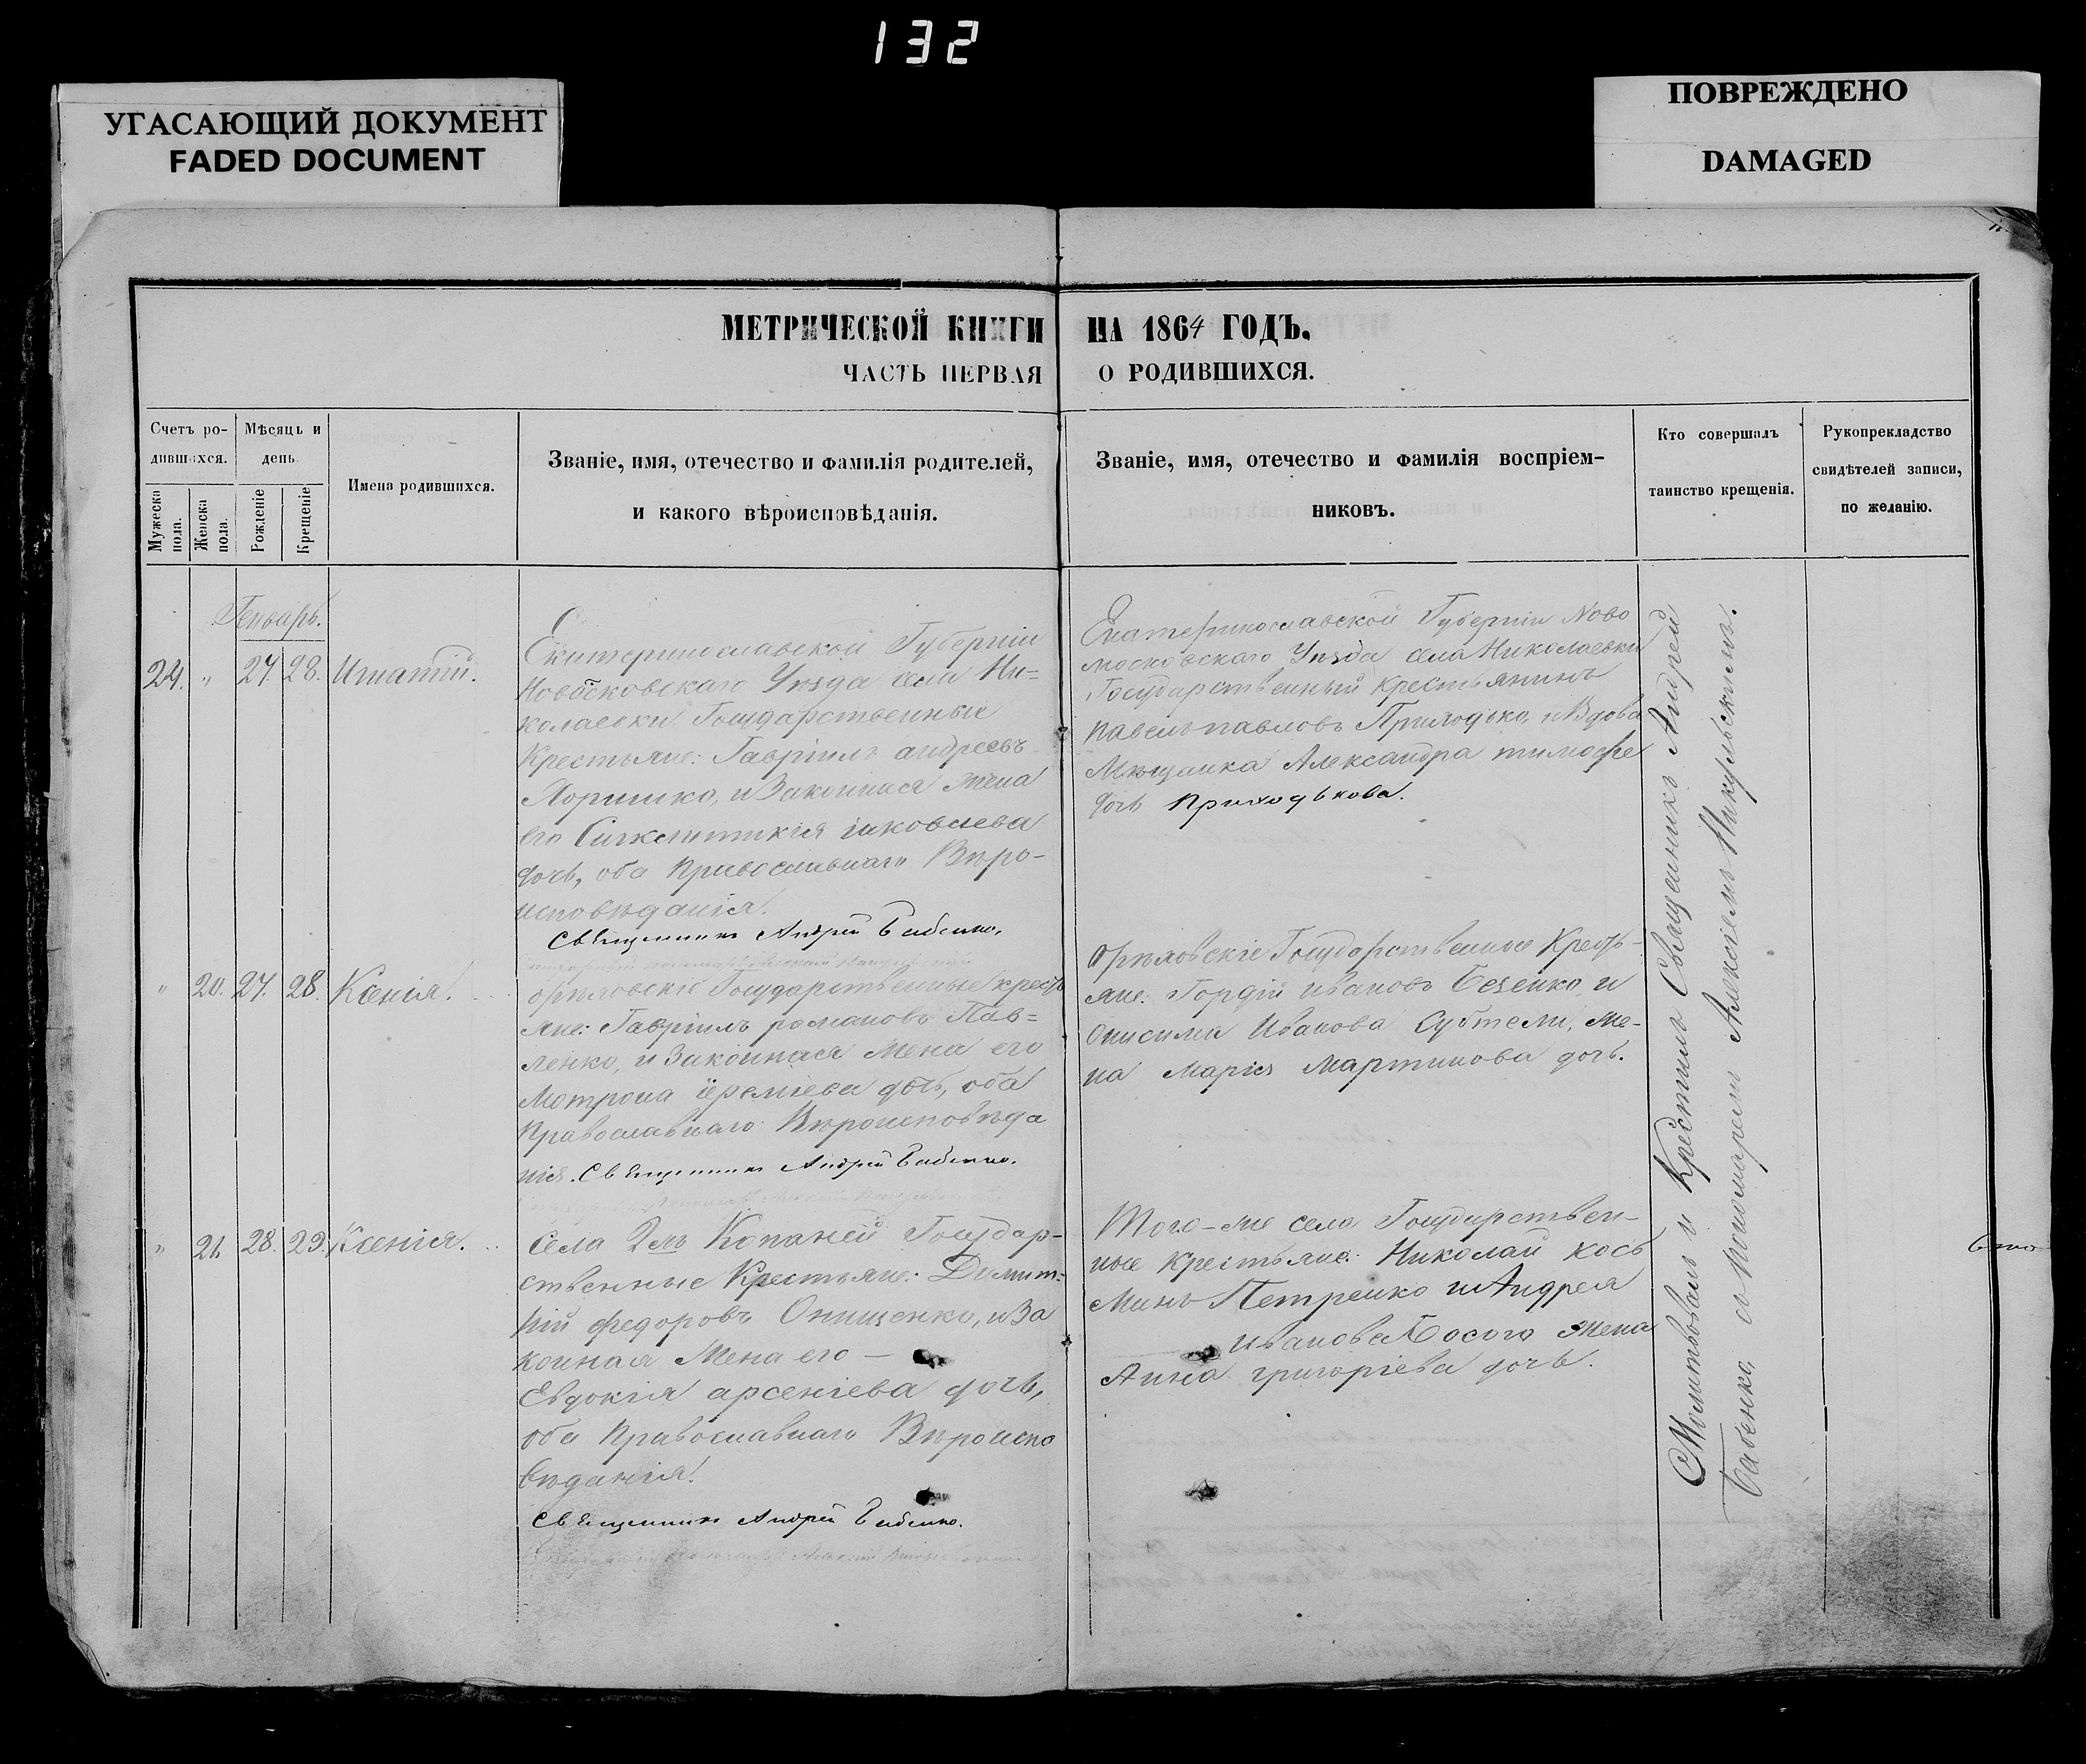 132
УГАСАЮЩИЙ ДОКУМЕНТ
FADED DOCUMENT
ПОВРЕЖДЕНО
DAMAGED
МЕТРИЧЕСКОЙ КНИГИ НА 1864 ГОДЪ.
ЧАСТЬ ПЕРВАЯ О РОДИВШИХСЯ.
Счетъ ро-
дившихся.
Мужеска
пола.
Женска
пола.
Мѣсяцъ и
день.
Рожденіе
Крещеніе
Имена родившихся.
Званіе, имя, отечество и фамилія родителей,
и какого вѣроисповѣданія.
Званіе, имя, отечество и фамилія воспріем-
никовъ.
Кто совершалъ
таинство крещенія.
Рукопрекладство
свидѣтелей записи,
по желанію.
Генварь.
24. " 27. 28. Игнатій.
Екатеринославской Губерніи
Уѣзда села Ни=
колаевки Государственные
Крестьяне: Гавріилъ андреевъ
и Законная жена
его Сигклитикія іаковлева
дочь, оба Православнаго Вѣро-
исповѣданія.
Священникъ Андрей Бабенко.
Екатеринославской Губерніи Ново
московскаго Уѣзда села Николаевки
Государственный крестьянинъ
павелъ павловъ Приходько, и Вдова
Мѣщанка Александра тимофе
дочь Приходькова.
" 20. 27. 28. Ксенія.
орѣловскіе Государственные крестья
яне: Гавріилъ романовъ Пав=
ленко, и Законная жена его
Мотрона іереміева дочь, оба
Православнаго Вѣроисповѣда
нія. Священникъ Андрей Бабенко.
Орѣловскіе Государственные Крестья-
яне: Гордій ивановъ и
Онисима Иванова Субтели, же-
на Марія Мартинова дочь.
" 21. 28. 29. Ксенія.
Села Копаней Государ-
ственные Крестьяне: Димит=
рій федоровъ Онищенко, и За
конная жена его —
Евдокія арсеніева дочь,
оба Православнаго Вѣроиспо
вѣданія.
Священникъ Андрей Бабенко.
Того-же села Государствен-
ные Крестьяне: Николай кось
минъ Петренко и Андрея
иванова Босого жена
Анна григоріева дочь.
Молитвовалъ и Крестилъ Священникъ Андрей
Бабенко, съ Пономаремъ Алексіемъ Никульскимъ.